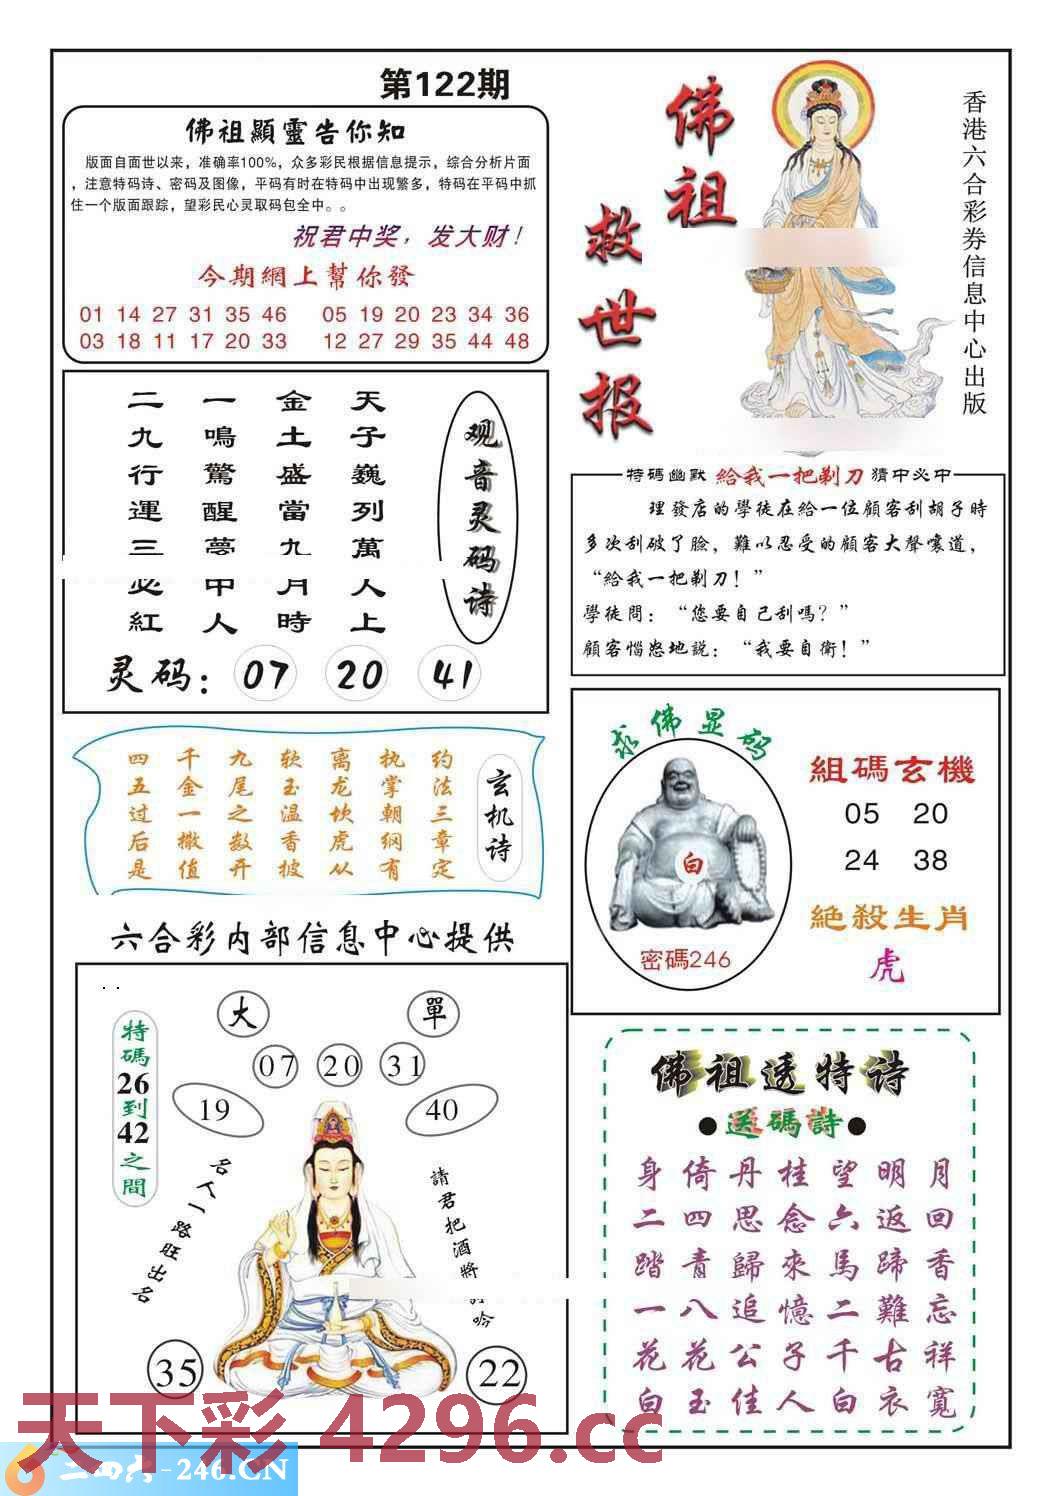 第122期
佛祖顯靈告你知
版面自面世以来，准确率100%，众多彩民根据信息提示，综合分析片面
，注意特码诗、密码及图像，平码有时在特码中出现繁多，特码在平码中抓
住一个版面跟踪，望彩民心灵取码包全中。。
祝君中奖，发大财！
今期網上幫你發
01 14 27 31 35 46 05 19 20 23 34 36
03 18 11 17 20 33 12 27 29 35 44 48
佛祖
救世报
香港六合彩券信息中心出版
观音灵码诗
天子巍列萬人上
金土盛當九月時
一鳴驚醒夢中人
二九行運三必紅
灵码：07 20 41
特碼幽默 給我一把剃刀 猜中必中
理發店的學徒在給一位顧客刮胡子時
多次刮破了臉，難以忍受的顧客大聲嚷道，
“給我一把剃刀！”
學徒問：“您要自己刮嗎？”
顧客惱怒地説：“我要自衛！”
玄机诗
约法三章定
执掌朝纲有
离龙坎虎从
软玉温香披
九尾之数开
千金一撒值
四五过后是
求佛显码
白
密碼246
組碼玄機
05 20
24 38
絕殺生肖
虎
六合彩内部信息中心提供
大 單
07 20 31
19 40
特碼26到42之間
名人一路旺出名
請君把酒將 吟
35 22
佛祖透特诗
●送碼詩●
身倚丹桂望明月
二四思念六返回
踏青歸來馬蹄香
一八追憶二難忘
花花公子千古祥
白玉佳人白衣寬
天下彩 4296.cc
二四六-246.CN